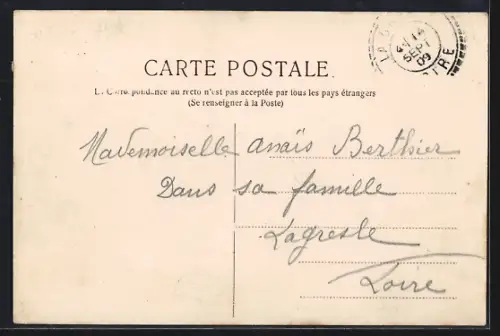 14
SEPT
09
CARTE POSTALE.
La Correspondance au recto n'est pas acceptée par tous les pays étrangers
(Se renseigner à la Poste)
Mademoiselle Anaïs Berthier
Dans sa famille
Lagresle
Loire